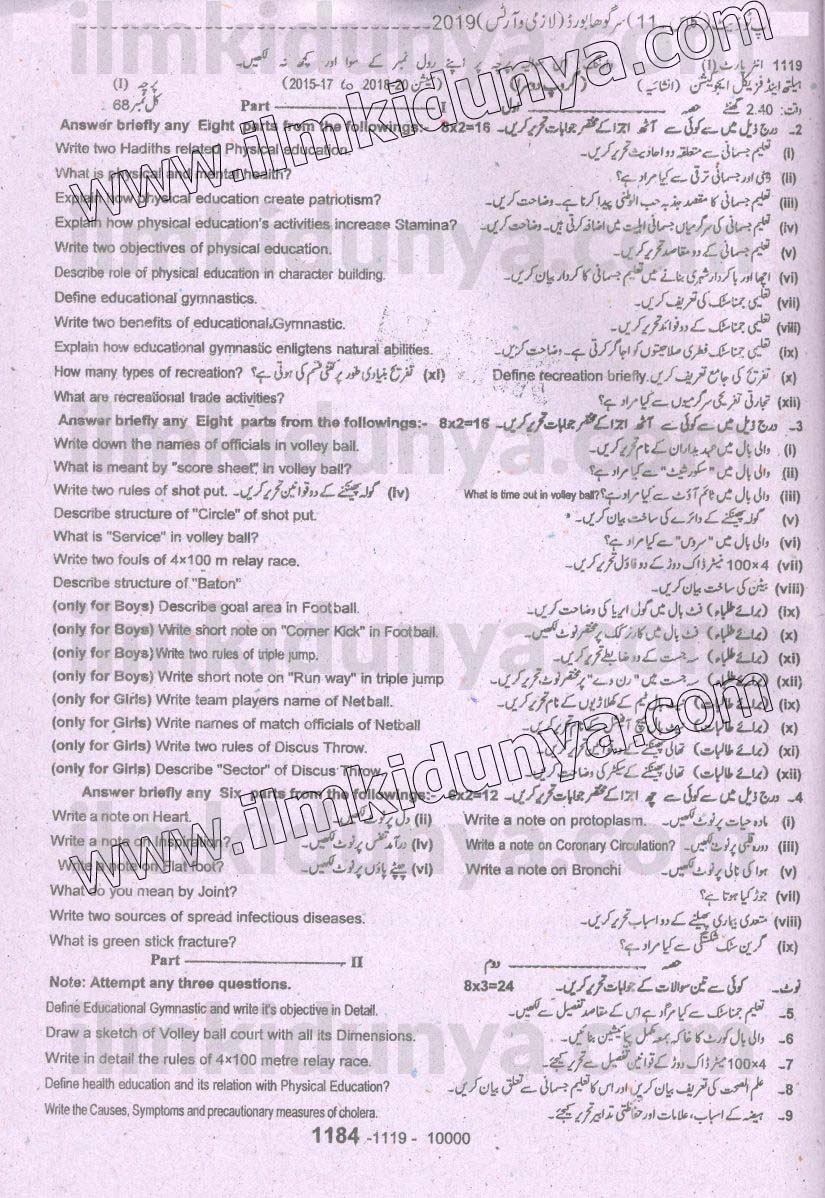 2019(لازمی و آرٹس) سرگودھا بورڈ (11
1119 انٹر پارٹ (I) پرچہ پر اپنے رول نمبر کے سوا اور کچھ نہ لکھیں۔
ہیلتھ اینڈ فزیکل ایجوکیشن (انشائیہ) (2015-17 to 2018-20 سیشن) پرچہ (I)
وقت: 2.40 گھنٹے حصہ Part I کل نمبر 68
Answer briefly any Eight parts from the followings:- 8x2=16 2۔ درج ذیل میں سے کوئی سے آٹھ اجزا کے مختصر جوابات تحریر کریں۔
Write two Hadiths related Physical education. (i) تعلیم جسمانی سے متعلقہ دو احادیث تحریر کریں۔
What is physical and mental health? (ii) ذہنی اور جسمانی ترقی سے کیا مراد ہے؟
Explain how physical education create patriotism? (iii) تعلیم جسمانی کا مقصد جذبہ حب الوطنی پیدا کرنا ہے۔ وضاحت کریں۔
Explain how physical education's activities increase Stamina? (iv) تعلیم جسمانی کی سرگرمیاں جسمانی اہلیت میں اضافہ کرتی ہیں۔ وضاحت کریں۔
Write two objectives of physical education. (v) تعلیم جسمانی کے دو مقاصد تحریر کریں۔
Describe role of physical education in character building. (vi) اچھا اور باکردار شہری بنانے میں تعلیم جسمانی کا کردار بیان کریں۔
Define educational gymnastics. (vii) تعلیمی جمناسٹک کی تعریف کریں۔
Write two benefits of educational Gymnastic. (viii) تعلیمی جمناسٹک کے دو فوائد تحریر کریں۔
Explain how educational gymnastic enligtens natural abilities. (ix) تعلیمی جمناسٹک فطری صلاحیتوں کو اجاگر کرتی ہے۔ وضاحت کریں۔
How many types of recreation? تفریح بنیادی طور پر کتنی قسم کی ہوتی ہے؟ (xi) Define recreation briefly. تفریح کی جامع تعریف کریں۔ (x)
What are recreational trade activities? (xii) تجارتی تفریحی سرگرمیوں سے کیا مراد ہے؟
Answer briefly any Eight parts from the followings:- 8x2=16 3۔ درج ذیل میں سے کوئی سے آٹھ اجزا کے مختصر جوابات تحریر کریں۔
Write down the names of officials in volley ball. (i) والی بال میں عہدیداران کے نام تحریر کریں۔
What is meant by "score sheet" in volley ball? (ii) والی بال میں "سکور شیٹ" سے کیا مراد ہے؟
Write two rules of shot put. گولہ پھینکنے کے دو قوانین تحریر کریں۔ (iv) What is time out in volley ball? والی بال میں ٹائم آؤٹ سے کیا مراد ہے؟ (iii)
Describe structure of "Circle" of shot put. (v) گولہ پھینکنے کے دائرے کی ساخت بیان کریں۔
What is "Service" in volley ball? (vi) والی بال میں "سروس" سے کیا مراد ہے؟
Write two fouls of 4×100 m relay race. (vii) 4×100 میٹر ڈاک دوڑ کے دو فاؤل تحریر کریں۔
Describe structure of "Baton" (viii) بیٹن کی ساخت بیان کریں۔
(only for Boys) Describe goal area in Football. (ix) (برائے طلباء) فٹ بال میں گول ایریا کی وضاحت کریں۔
(only for Boys) Write short note on "Corner Kick" in Football. (x) (برائے طلباء) فٹ بال میں کارنر کک پر مختصر نوٹ لکھیں۔
(only for Boys) Write two rules of triple jump. (xi) (برائے طلباء) سہ جست کے دو ضابطے تحریر کریں۔
(only for Boys) Write short note on "Run way" in triple jump (xii) (برائے طلباء) سہ جست میں "رن وے" پر مختصر نوٹ تحریر کریں۔
(only for Girls) Write team players name of Netball. (ix) (برائے طالبات) ٹیم کے کھلاڑیوں کے نام تحریر کریں۔
(only for Girls) Write names of match officials of Netball (x) (برائے طالبات) کے نام تحریر کریں۔
(only for Girls) Write two rules of Discus Throw. (xi) (برائے طالبات) تھالی پھینکنے کے تحریر کریں۔
(only for Girls) Describe "Sector" of Discus Throw. (xii) (برائے طالبات) تھالی پھینکنے کے سیکٹر کی وضاحت کریں۔
Answer briefly any Six parts from the followings:- 6x2=12 4۔ درج ذیل میں سے کوئی سے چھ اجزا کے مختصر جوابات تحریر کریں۔
Write a note on Heart. دل پر نوٹ (ii) Write a note on protoplasm. مادہ حیات پر نوٹ لکھیں۔ (i)
Write a note on Inspiration? درآمد تنفس پر نوٹ لکھیں۔ (iv) Write a note on Coronary Circulation? دورہ قلبی پر نوٹ لکھیں۔ (iii)
Write a note on Flat foot? چپٹے پاؤں پر نوٹ لکھیں۔ (vi) Write a note on Bronchi ہوا کی نالی پر نوٹ لکھیں۔ (v)
What do you mean by Joint? (vii) جوڑ کیا ہوتا ہے؟
Write two sources of spread infectious diseases. (viii) متعدی بیماری پھیلنے کے دو اسباب تحریر کریں۔
What is green stick fracture? (ix) گرین سٹک شکستگی سے کیا مراد ہے؟
Part II حصہ دوم
Note: Attempt any three questions. 8x3=24 نوٹ۔ کوئی سے تین سوالات کے جوابات تحریر کریں۔
Define Educational Gymnastic and write it's objective in Detail. 5۔ تعلیم جمناسٹک سے کیا مراد ہے اس کے مقاصد تفصیل سے لکھیں۔
Draw a sketch of Volley ball court with all its Dimensions. 6۔ والی بال کورٹ کا خاکہ بمعہ مکمل پیمائشیں بنائیں۔
Write in detail the rules of 4×100 metre relay race. 7۔ 4×100 میٹر ڈاک دوڑ کے قوانین تفصیل سے تحریر کیجئے۔
Define health education and its relation with Physical Education? 8۔ علم الصحت کی تعریف بیان کریں اور اس کا تعلیم جسمانی سے تعلق بیان کریں۔
Write the Causes, Symptoms and precautionary measures of cholera. 9۔ ہیضہ کے اسباب، علامات اور حفاظتی تدابیر تحریر کیجئے۔
1184 -1119 - 10000
www.ilmkidunya.com
www.ilmkidunya.com